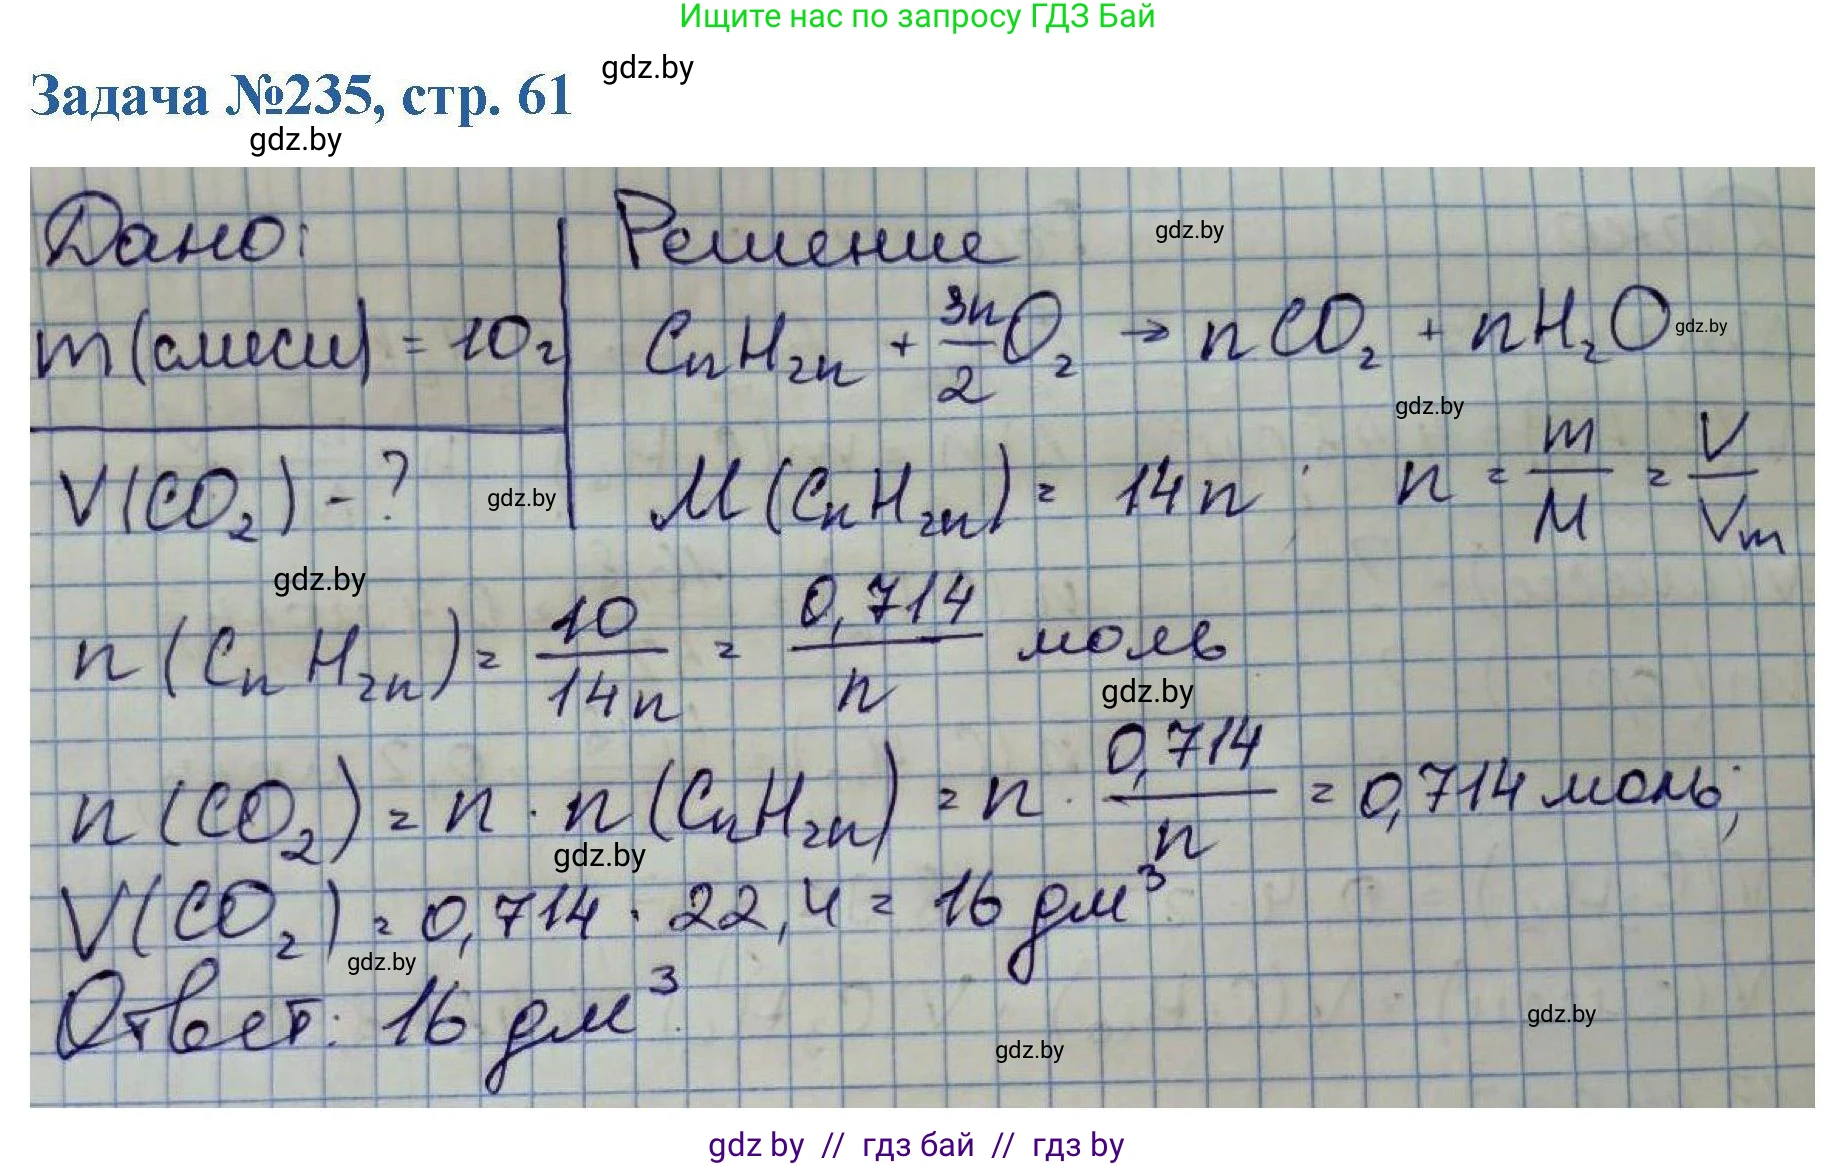 Ищите нас по запросу ГДЗ Бай
Задача №235, стр. 61
gdz.by
gdz.by
Дано:
Решение
gdz.by
m(смеси) = 10г
CnH2n + 3n/2 O2 → nCO2 + nH2O
gdz.by
gdz.by
V(CO2) - ?
gdz.by
M(CnH2n) = 14n; n = m/M = V/Vm
gdz.by
n(CnH2n) = 10/14n = 0,714/n моль
gdz.by
n(CO2) = n · n(CnH2n) = n · 0,714/n = 0,714 моль;
gdz.by
V(CO2) = 0,714 · 22,4 = 16 дм³
gdz.by
Ответ: 16 дм³.
gdz.by
gdz.by
gdz by // гдз бай // гдз by